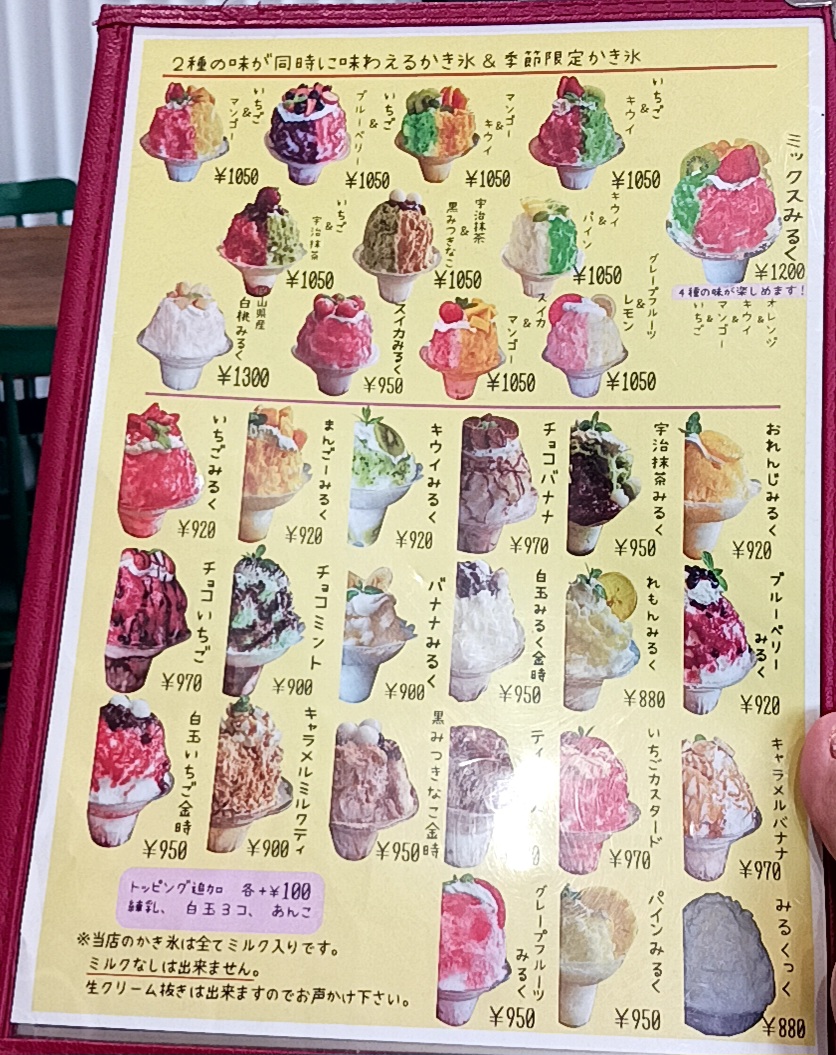 2種の味が同時に味わえるかき氷 & 季節限定かき氷
いちご
&
マンゴー
¥1050
いちご
&
ブルーベリー
¥1050
マンゴー
&
キウイ
¥1050
いちご
&
キウイ
¥1050
ミックスみるく
¥1200
4種の味が楽しめます!
オレンジ
&
キウイ
&
マンゴー
&
いちご
いちご
&
宇治抹茶
¥1050
宇治抹茶
&
黒みつきなこ
¥1050
キウイ
&
パイン
¥1050
山県産
白桃みるく
¥1300
スイカみるく
¥950
スイカ
&
マンゴー
¥1050
グレープフルーツ
&
レモン
¥1050
いちごみるく
¥920
まんごーみるく
¥920
キウイみるく
¥920
チョコバナナ
¥970
宇治抹茶みるく
¥950
おれんじみるく
¥920
チョコいちご
¥970
チョコミント
¥900
バナナみるく
¥900
白玉みるく金時
¥950
れもんみるく
¥880
ブルーベリー
みるく
¥920
白玉いちご金時
¥950
キャラメルミルクティ
¥900
黒みつきなこ金時
¥950
ティ
いちごカスタード
¥970
キャラメルバナナ
¥970
グレープフルーツ
みるく
¥950
パインみるく
¥950
みるくっく
¥880
トッピング追加 各+¥100
練乳、白玉3コ、あんこ
※当店のかき氷は全てミルク入りです。
ミルクなしは出来ません。
生クリーム抜きは出来ますのでお声かけ下さい。